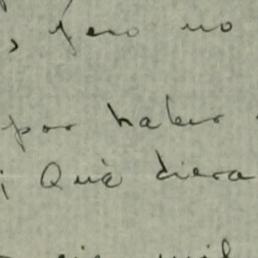 , pero no
por haber
¡Qué diera